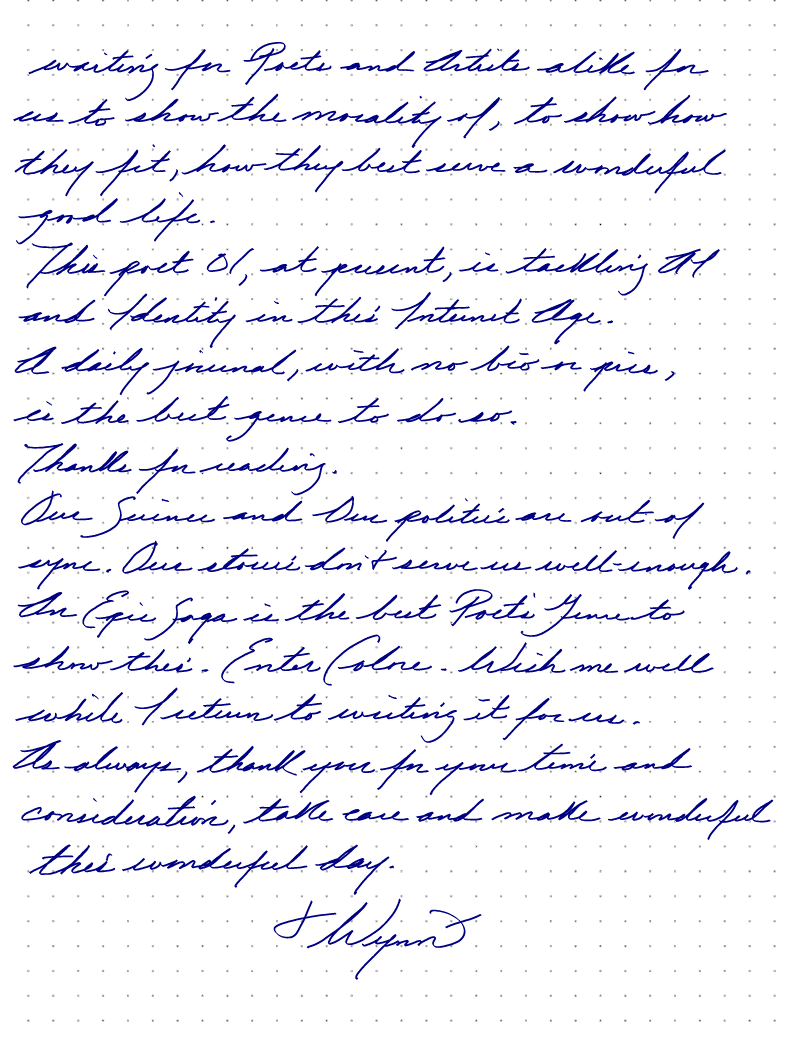 waiting for Poets and Artists alike for
us to show the morality of, to show how
they fit, how they best serve a wonderful
good life.
This poet 01, at present, is tackling AI
and Identity in this Internet Age.
A daily journal, with no bio or pics,
is the best genre to do so.
Thanks for reading.
Our Science and Our politics are out of
sync. Our stories don't serve us well-enough.
An Epic Saga is the best Poet's Genre to
show this. Enter Colore. Wish me well
while I return to writing it for us.
As always, thank you for your time and
consideration, take care and make wonderful
this wonderful day.
Wynn